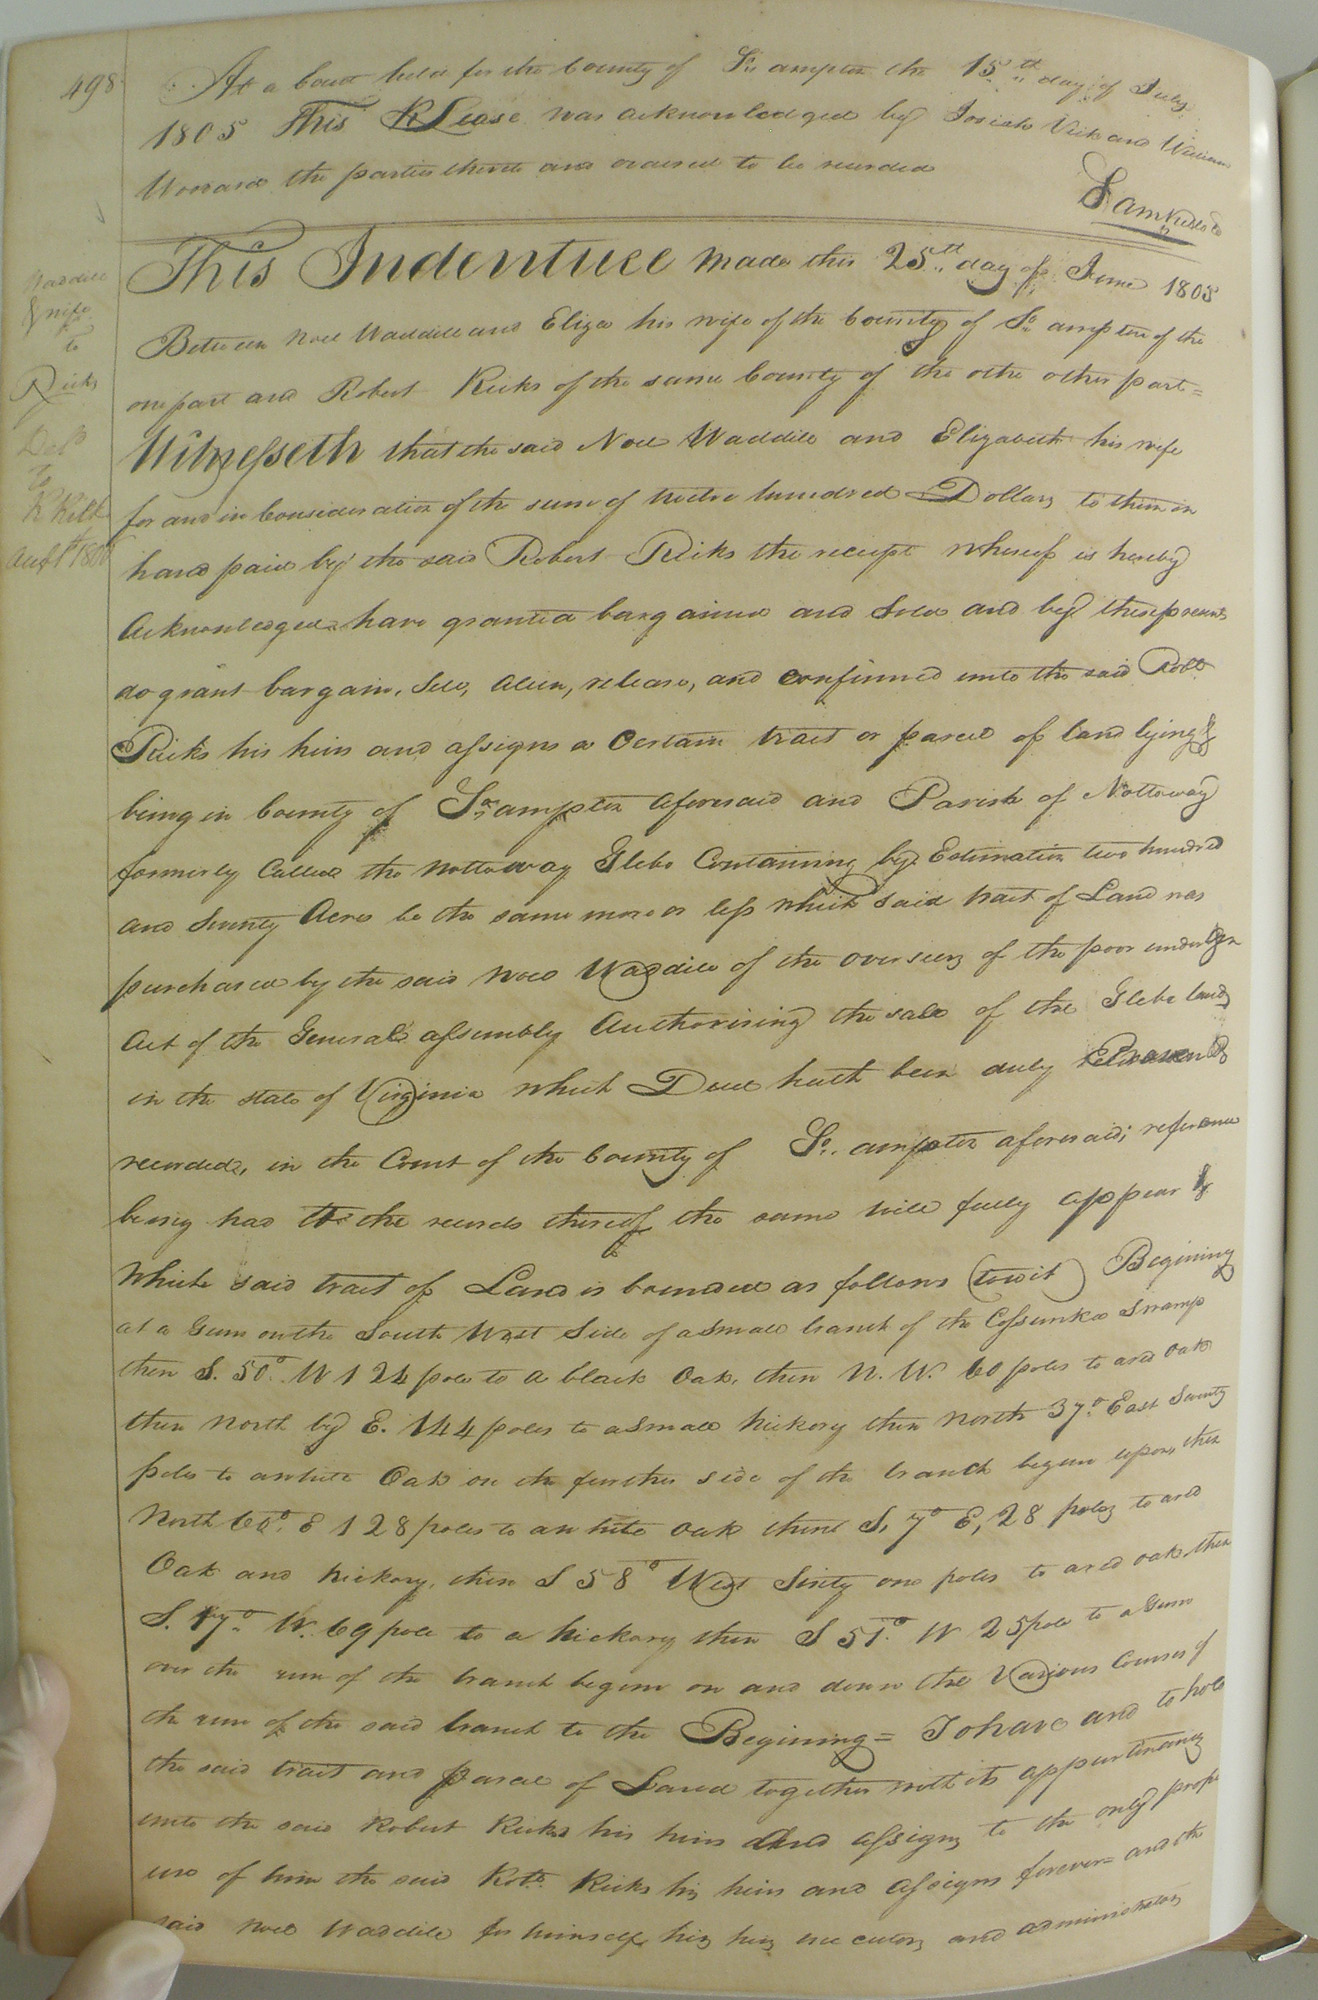 498
At a Court held for the County of So.ampton the 15th day of July
1805 This R Lease was acknowledged by Josiah Vick and William
Woodard the parties thereto and ordered to be recorded
Sam Kello
Waddill
& wife
to
Ricks
Deld
to
R Ricks
Augt 180
This Indenture made this 25th day of June 1805
Between Noel Waddill and Eliza his wife of the County of So.ampton of the
one part and Robert Ricks of the same County of the othe other part =
Witnesseth that the said Noel Waddill and Elizabeth his wife
for and in Consideration of the sum of twelve hundred Dollars to them in
hand paid by the said Robert Ricks the receipt whereof is hereby
Acknowledged have granted bargained and Sold and by these presents
do grant bargain, Sell, alien, release, and confirmed unto the said Robt
Ricks his heirs and assigns a Certain tract or parcel of land lying &
being in County of So.ampton aforesaid and Parish of Nottoway
formerly Called the Nottoway Glebe Containing by Estimation two hundred
and Seventy Acres be the same more or less which said tract of Land was
purchased by the said Noel Waddill of the overseers of the poor under an
Act of the General assembly Authorising the sale of the Glebe lands
in the state of Virginia which Deed hath been duly
recorded, in the Court of the County of So.ampton aforesaid; reference
being had to the records thereof the same will fully appear &
which said tract of Land is bounded as follows (towit) Begining
at a Gum on the South West Side of a Small branch of the Assunkoo Swamp
then S. 50° W 124 poles to a black Oak, then N. W. 60 poles to a red oak
then North by E. 144 poles to a Small hickory then North 37° East Seventy
poles to a white Oak on the further side of the branch begun upon, then
North 60° E 128 poles to a white oak thence S. 7° E, 28 poles to a red
Oak and hickory, then S 58° West Sixty one poles to a red oak then
S. 17° W. 69 pole to a hickory then S 51° W 25 pole to a Gum
over the run of the branch begun on and down the Various Courses of
the run of the said branch to the Begining = To have and to hold
the said tract and parcel of Land together with its appurtinancies
unto the said Robert Ricks his heirs And assigns to the only proper
use of him the said Robt Ricks his heirs and assigns forever = and the
said Noel Waddill for himself, his heirs executors and administrators